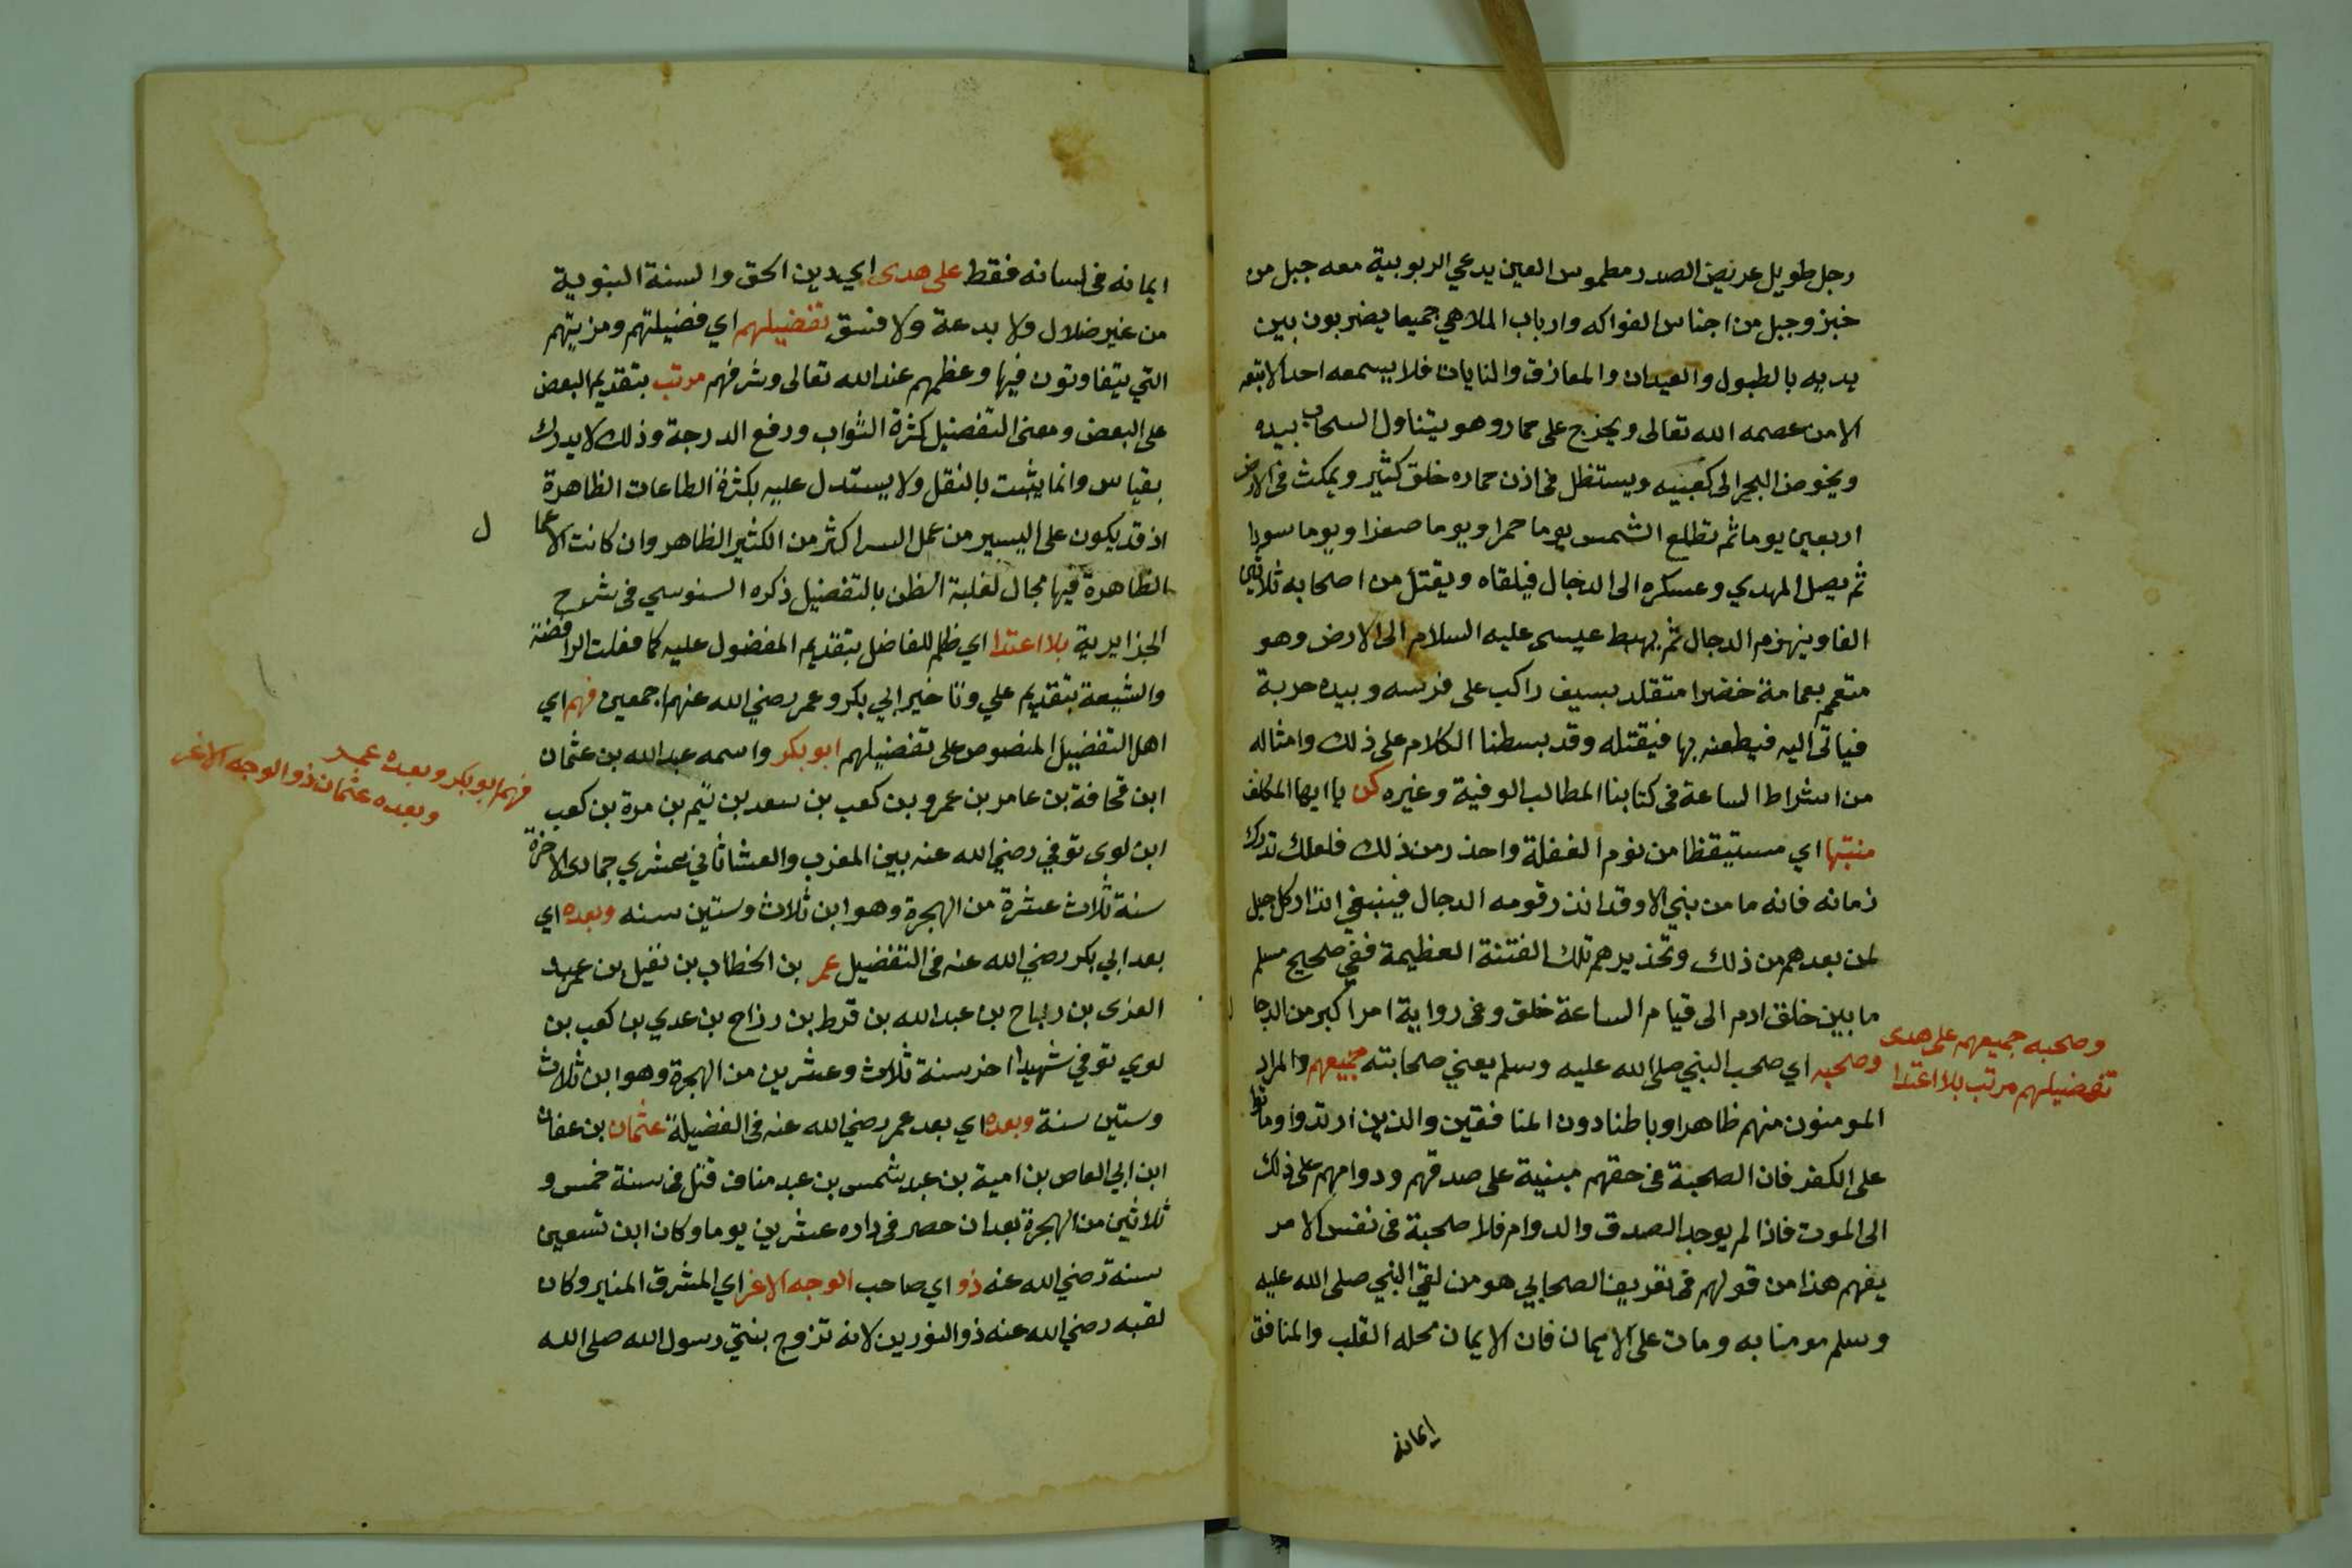 رجل طويل عريض الصدر مطموس العين يدعي الربوبية معه جبل من
خبز وجبل من اجناس الفواكه وارباب الملاهي جميعا يضربون بين
يديه بالطبول والعيدان والمعازف والنايات فلا يسمعه احد الا تبعه
الا من عصمه الله تعالى ويخرج على حمار وهو يتناول السحاب بيده
ويخوض البحر الى كعبيه ويستظل في اذن حماره خلق كثير ويمكث في الارض
اربعين يوما ثم تطلع الشمس يوما حمرا ويوما صفرا ويوما سودا
ثم يصل المهدي وعسكره الى الدجال فيلقاه ويقتل من اصحابه ثلاثين
الفا وينهزم الدجال ثم يهبط عيسى عليه السلام الى الارض وهو
متعمم بعمامة خضرا متقلد بسيف راكب على فرسه وبيده حربة
فياتى اليه فيطعنه بها فيقتله وقد بسطنا الكلام على ذلك وامثاله
من اشراط الساعة في كتابنا المطالب الوفية وغيره كن يا ايها المكلف
منتبها اي مستيقظا من نوم الغفلة واحذر من ذلك فلعلك تدرك
زمانه فانه ما من نبي الا وقد انذر قومه الدجال فينبغي انذار كل جيل
لمن بعدهم من ذلك وتحذيرهم تلك الفتنة العظيمة ففي صحيح مسلم
ما بين خلق ادم الى قيام الساعة خلق وفي رواية امر اكبر من الدجال
وصحبه اي صحب النبي صلى الله عليه وسلم يعني صحابته جميعهم والمراد
وصحبه جميعهم على هدى
تفضيلهم مرتب بلا اعتدا
المومنون منهم ظاهرا وباطنا دون المنافقين والذين ارتدوا وماتوا
على الكفر فان الصحبة في حقهم مبنية على صدقهم ودوامهم على ذلك
الى الموت فاذا لم يوجد الصدق والدوام فلا صحبة في نفس الامر
يفهم هذا من قولهم في تعريف الصحابي هو من لقي النبي صلى الله عليه
وسلم مومنا به ومات على الايمان فان الايمان محله القلب والمنافق
ايمانه
ايمانه في لسانه فقط على هدى اي دين الحق والسنة النبوية
من غير ضلال ولا بدعة ولا فسق تفضيلهم اي فضيلتهم ومزيتهم
التي يتفاوتون فيها وعظمهم عند الله تعالى وشرفهم مرتب بتقديم البعض
على البعض ومعنى التفضيل كثرة الثواب ورفع الدرجة وذلك لا يدرك
بقياس وانما يثبت بالنقل ولا يستدل عليه بكثرة الطاعات الظاهرة
اذ قد يكون على اليسير من عمل السر اكثر من الكثير الظاهر وان كانت الاعمال
الظاهرة فيها مجال لغلبة الظن بالتفضيل ذكره السنوسي في شرح
الجزايرية بلا اعتدا اي ظلم للفاضل بتقديم المفضول عليه كما فعلت الرافضة
والشيعة بتقديم علي وتاخير ابي بكر وعمر رضي الله عنهم اجمعين فهم اي
اهل التفضيل المنصوص على تفضيلهم ابو بكر واسمه عبد الله بن عثمان
فهم ابو بكر وبعده عمر
وبعده عثمان ذو الوجه الاغر
ابن قحافة بن عامر بن عمرو بن كعب بن سعد بن تيم بن مرة بن كعب
ابن لوى توفي رضي الله عنه بين المغرب والعشا ثاني عشري جمادى الاخرة
سنة ثلاث عشرة من الهجرة وهو ابن ثلاث وستين سنه وبعده اي
بعد ابي بكر رضي الله عنه في التفضيل عمر بن الخطاب بن نفيل بن عبد
العزى بن رباح بن عبد الله بن قرط بن رزاح بن عدي بن كعب بن
لوي توفي شهيدا اخر سنة ثلاث وعشرين من الهجرة وهو ابن ثلاث
وستين سنة وبعده اي بعد عمر رضي الله عنه في الفضيلة عثمان بن عفان
ابن ابي العاص بن امية بن عبد شمس بن عبد مناف قتل في سنة خمس و
ثلاثين من الهجرة بعد ان حصر في داره عشرين يوما وكان ابن تسعين
سنة رضي الله عنه ذو اي صاحب الوجه الاغر اي المشرق المنير وكان
لقبه رضي الله عنه ذو النورين لانه تزوج بنتي رسول الله صلى الله